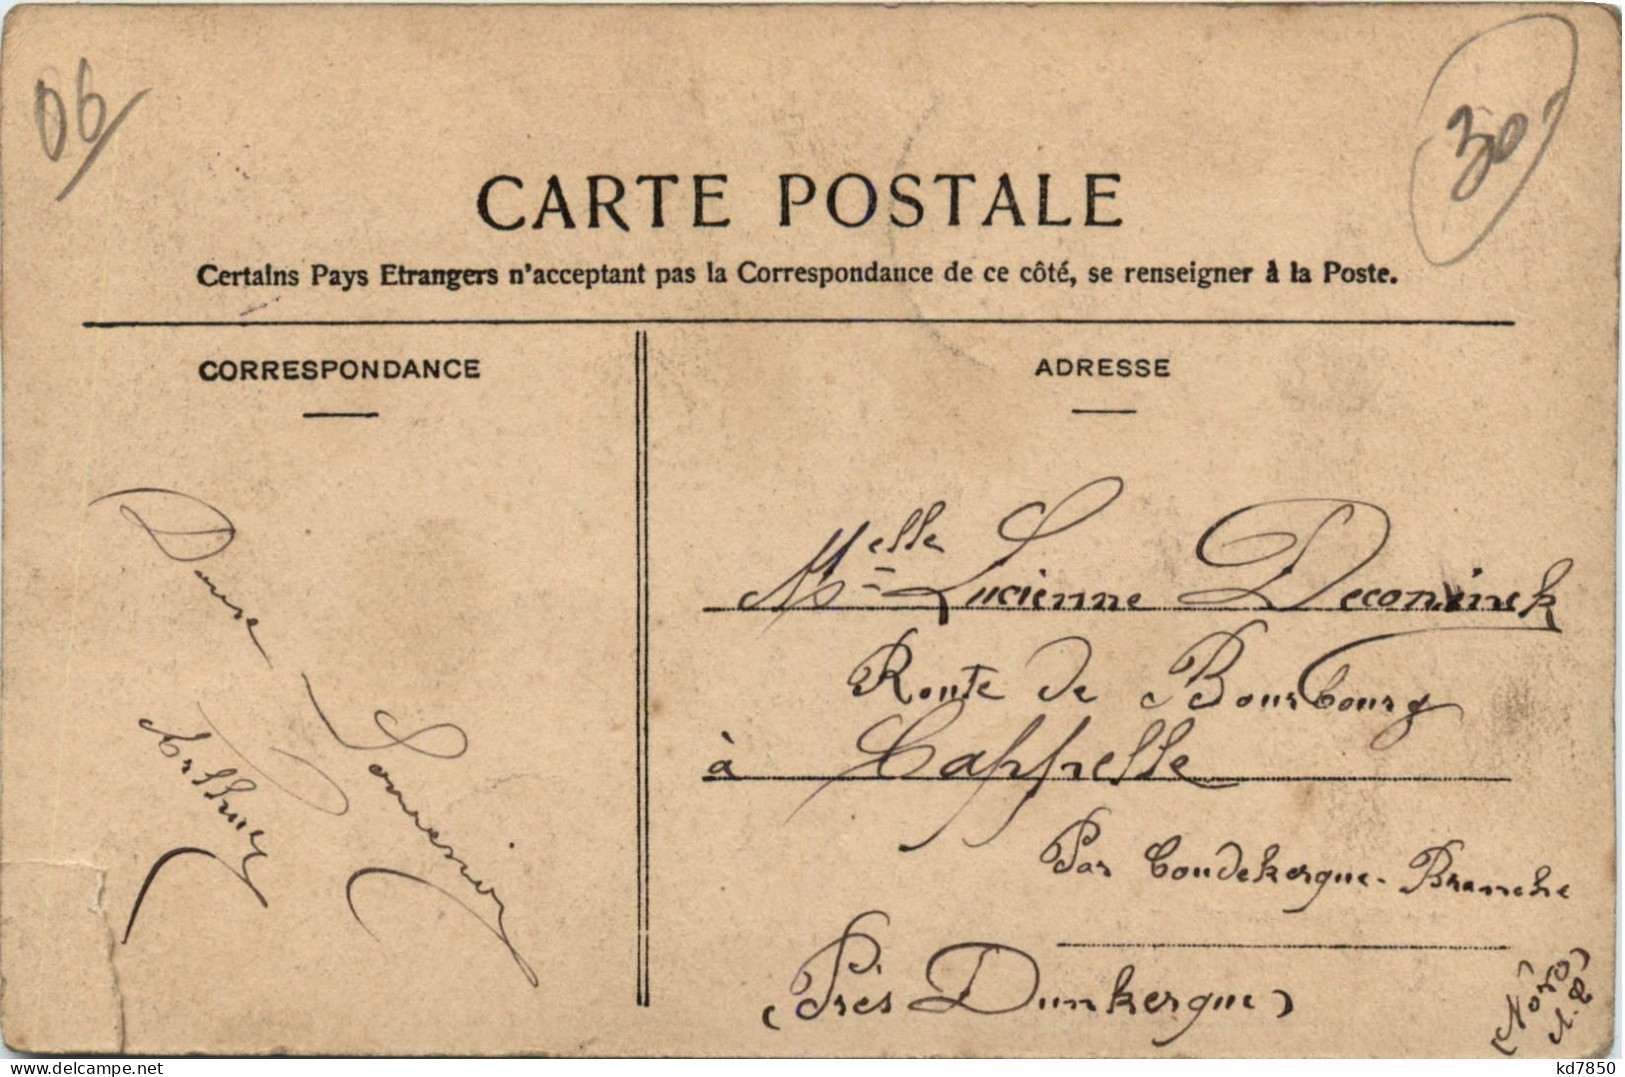 06
30
CARTE POSTALE
Certains Pays Etrangers n'acceptant pas la Correspondance de ce côté, se renseigner à la Poste.
CORRESPONDANCE
Doux
Souvenir
Arthur
ADRESSE
Melle Lucienne Deconinck
Route de Bourbourg
à Cappelle
Par Coudekergue-Branche
(Près Dunkergue)
(Nord)
delcampe.net
kd7850